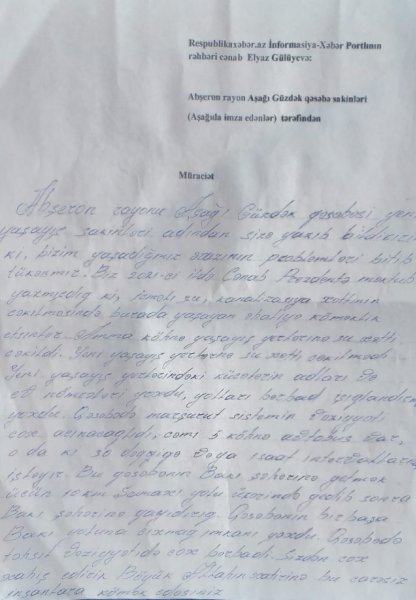 Respublikaxəbər.az İnformasiya-Xəbər Portlının
rəhbəri cənab Elyaz Gülüyevə:
Abşeron rayon Aşağı Güzdək qəsəbə sakinləri
(Aşağıda imza edənlər) tərəfindən
Müraciət
Abşeron rayonu Aşağı Güzdək qəsəbəsi yeni
yaşayış sakinləri adından sizə yazıb bildiririk
ki, bizim yaşadığımız ərazinin problemləri bitib
tükənmir. Biz 2021-ci ildə Cənab Prezidentə məktub
yazmışdıq ki, içməli su, kanalizasiya xəttinin
çəkilməsində burada yaşayan əhaliyə köməklik
etsinlər. Amma köhnə yaşayış yerlərinə su xətti
çəkildi. Yeni yaşayış yerlərinə su xətti çəkilmədi
Yeni yaşayış yerlərindəki küçələrin adları və
ev nömrələri yoxdu, yolları bərbad işıqlandırma
yoxdu. Qəsəbədə marşurut sistemin vəziyyəti
çox acınacaqlıdı, cəmi 5 köhnə avtobus var,
o da ki 30 dəyqə və ya 1 saat intervallarla
işləyir. Bu qəsəbənin Bakı şəhərinə getmək
üçün 10 km Şamaxı yolu üzərində gedib sonra
Bakı şəhərinə qayıdırıq. Qəsəbənin birbaşa
Bakı yoluna çıxmaq imkanı yoxdu. Qəsəbədə
təhsil vəziyyətidə çox bərbaddı. Sizdən çox
xahiş edirik Böyük Allahın xatirinə bu çarəsiz
insanlara kömək edəsiniz